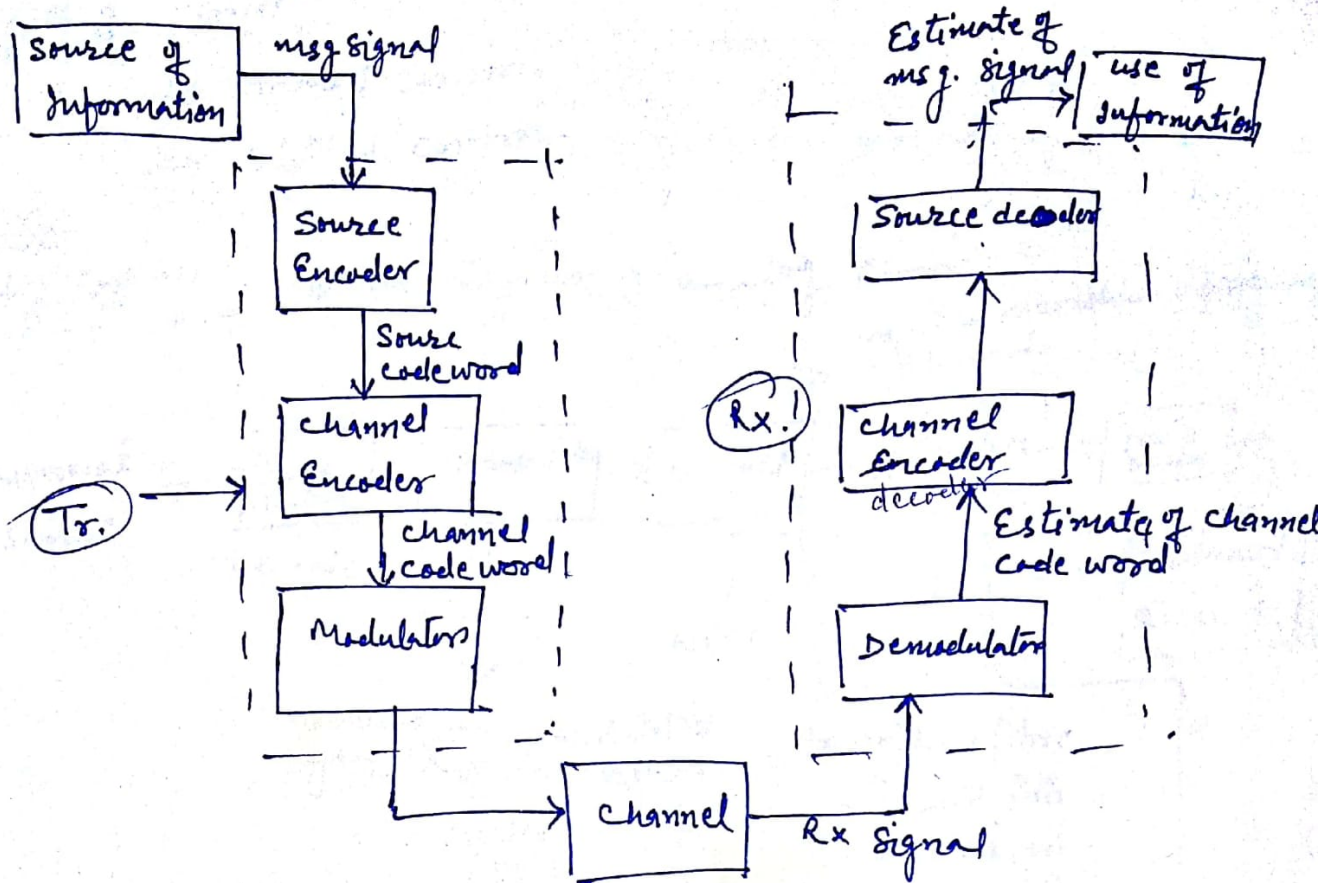 Source of
Information
msg signal
Source
Encoder
Sourse
codeword
Channel
Encoder
Tr.
Channel
code word
Modulators
Channel
Rx Signal
Demodulator
Estimate of Channel
Code word
Channel
Encoder
decoder
Rx.
Source decoder
Estimate of
msg. signal
use of
Information